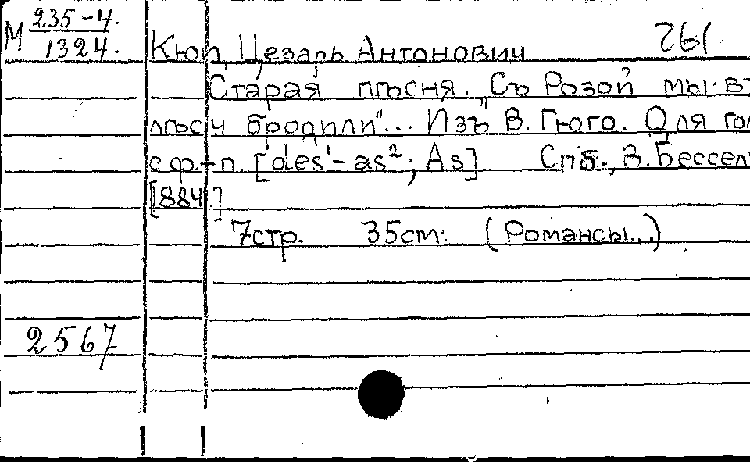 М 235-4. 1324.
Кюи, Цезарь Антонович 261
Старая пѣсня. „Съ Розой мы въ
лѣсу бродили"... Изъ В. Гюго. Для гол
с ф.-п. [des¹-as²; As] Спб., В. Бессель
[1884.]
7 стр. 35 cm. (Романсы...)
2567